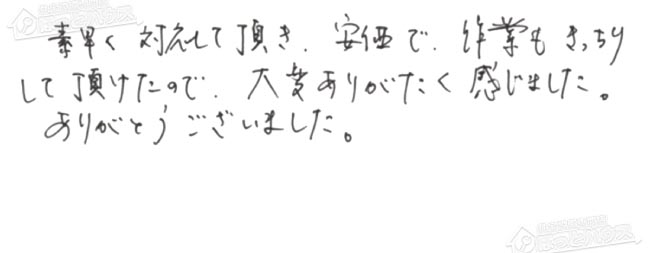 素早く対応して頂き、安価で、作業もきっちり
して頂けたので、大変ありがたく感じました。
ありがとうございました。